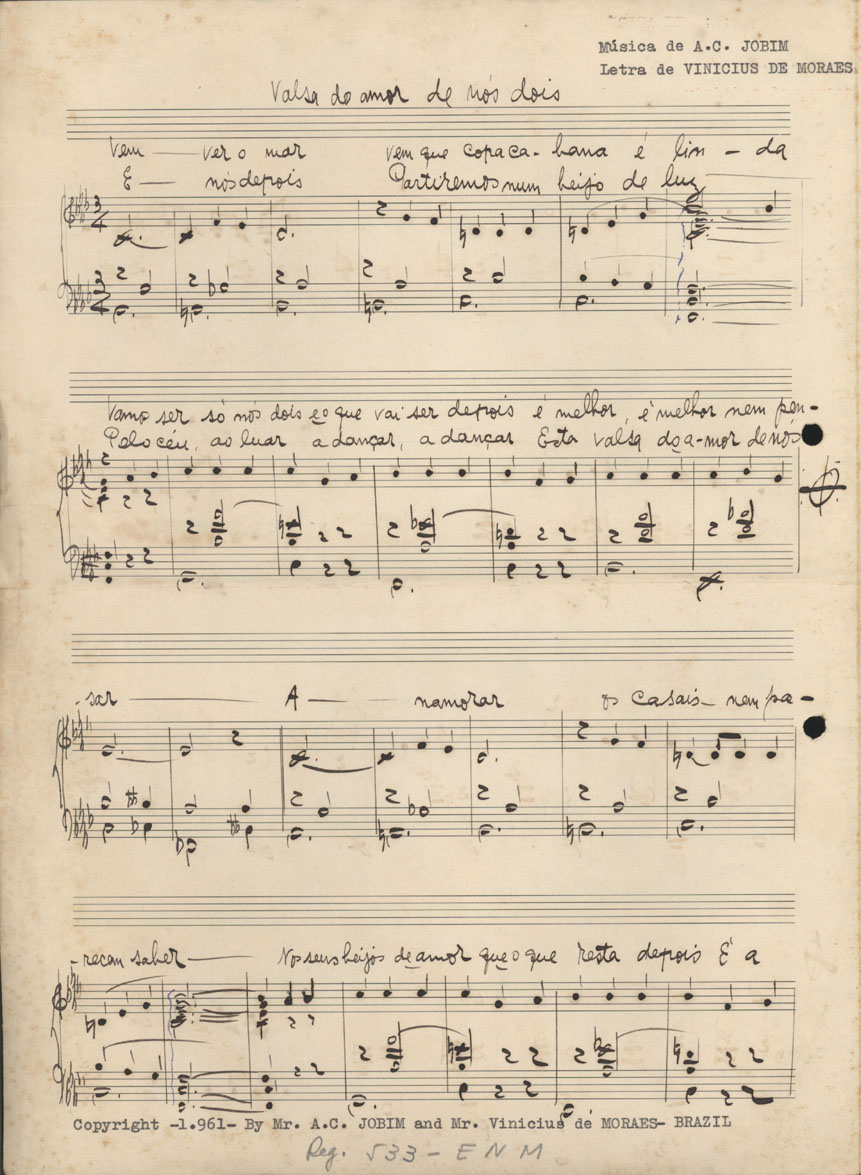 Música de A.C. JOBIM
Letra de VINICIUS DE MORAES
Valsa do amor de nós dois
Vem — ver o mar vem que copaca-bana é lin-da
E — nós depois Partiremos num beijo de luz
3/4
3/4
Vamo ser só nós dois e o que vai ser depois é melhor, é melhor nem pen-
Pelo céu, ao luar a dançar, a dançar Esta valsa do a-mor de nós
-sar — A — namorar os casais nem pa-
-recem saber — Nos seus beijos de amor que o que resta depois É a
Copyright -1.961- By Mr. A.C. JOBIM and Mr. Vinicius de MORAES- BRAZIL
Reg. 533 - E N M